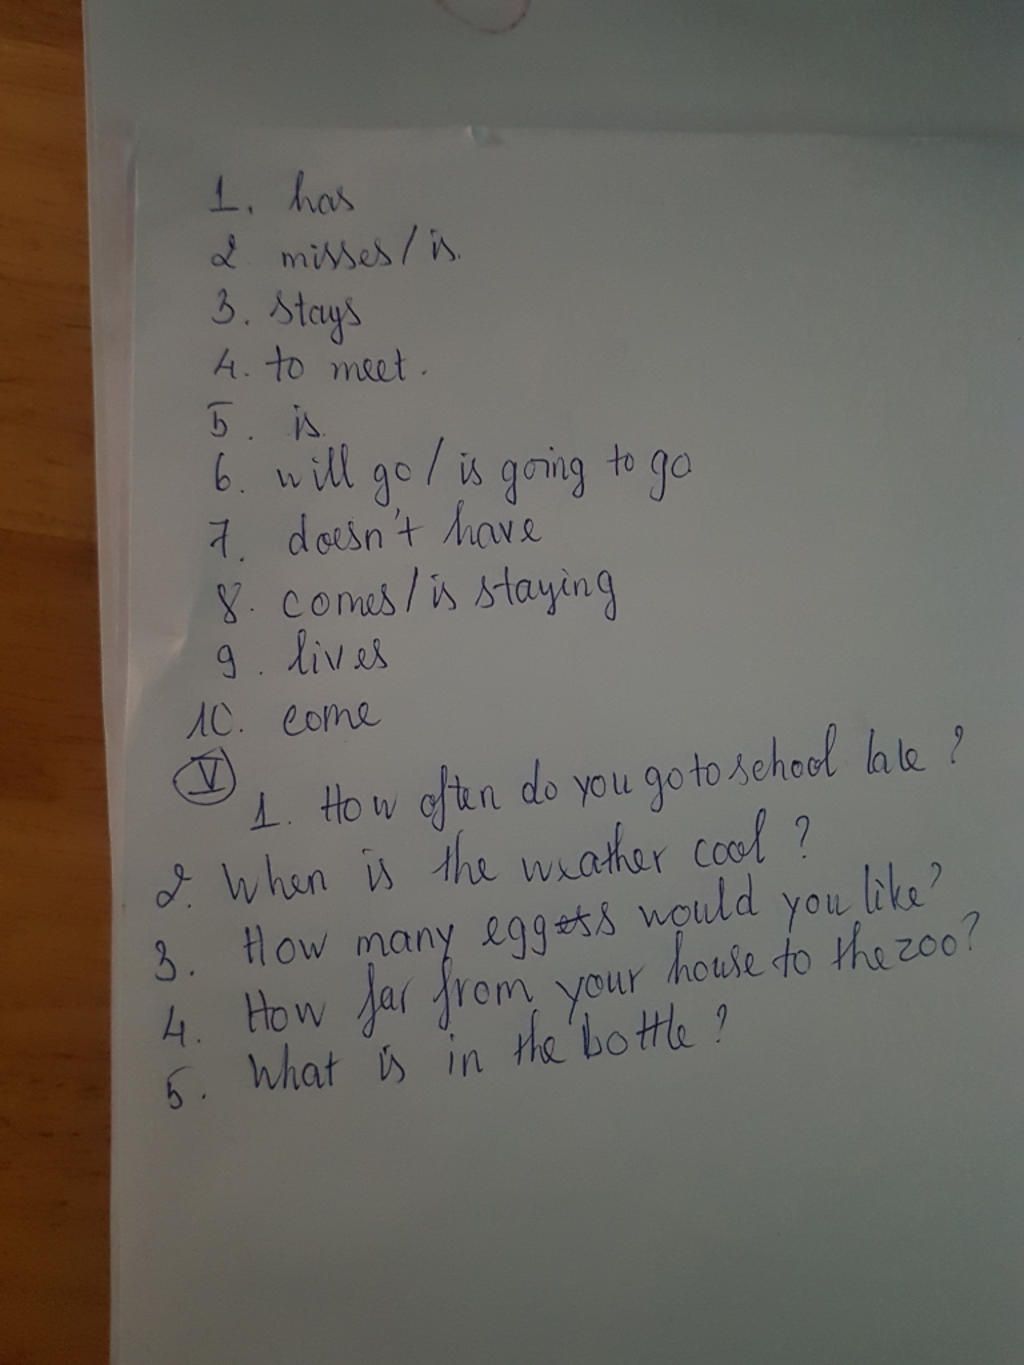 1. has
2 misses/is.
3. stays
4. to meet.
5. is.
6. will go/is going to go
7. doesn't have
8. comes/is staying
9. lives
10. come
V
1. How often do you go to school late?
2. When is the weather cool?
3. How many eggs would you like?
4. How far from your house to the zoo?
5. What is in the bottle?